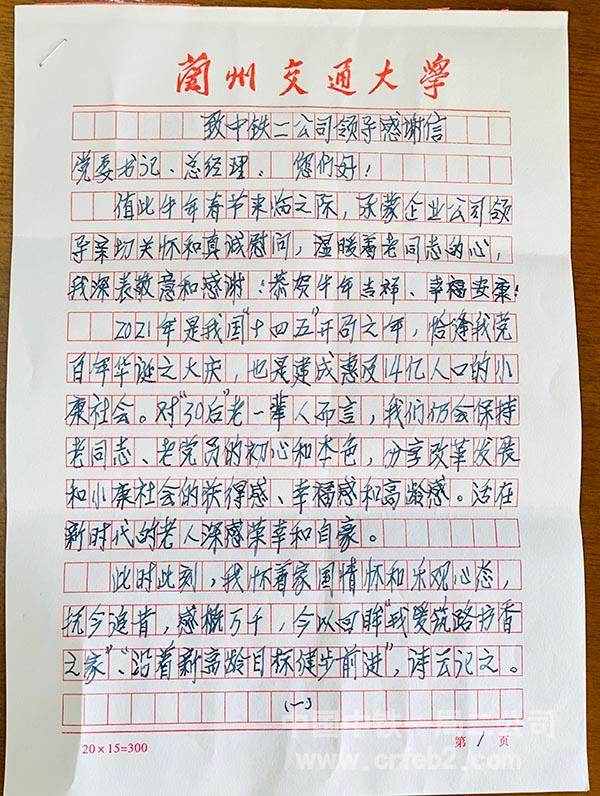 蘭州交通大學
致中铁二公司领导感谢信
党委书记、总经理：您们好！
值此牛年春节来临之际，承蒙企业公司领
导亲切关怀和真诚慰问，温暖着老同志的心，
我深表敬意和感谢！恭贺牛年吉祥、幸福安康！
2021年是我国"十四五"开局之年，恰逢我党
百年华诞之大庆，也是建成惠及14亿人口的小
康社会。对"30后"老一辈人而言，我们仍会保持
老同志、老党员的初心和本色，分享改革发展
和小康社会的获得感、幸福感和高龄感。活在
新时代的老人深感荣幸和自豪。
此时此刻，我怀着家国情怀和乐观心态，
抚今追昔，感概万千，今以回眸"我爱筑路书香
之家"、"沿着新高龄目标健步前进"，诗云记之。
(一)
20×15=300
第1页
www.crfeb2.com